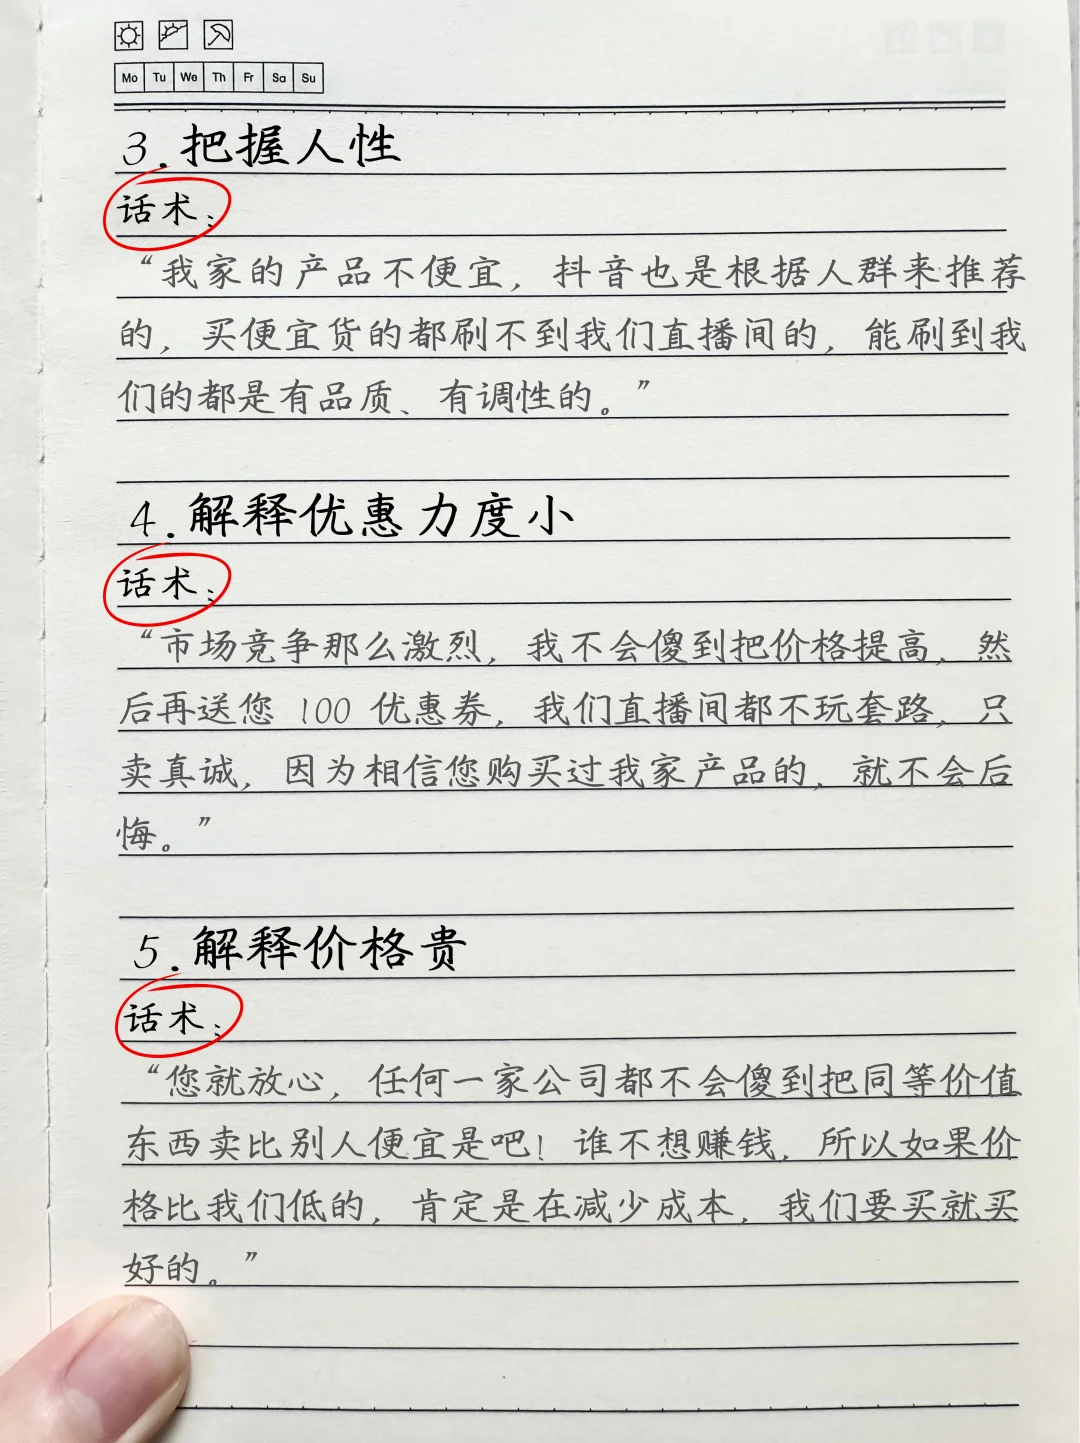 Mo Tu We Th Fr Sa Su
3.把握人性
话术：
“我家的产品不便宜，抖音也是根据人群来推荐
的，买便宜货的都刷不到我们直播间的，能刷到我
们的都是有品质、有调性的。”
4.解释优惠力度小
话术：
“市场竞争那么激烈，我不会傻到把价格提高，然
后再送您 100 优惠券，我们直播间都不玩套路，只
卖真诚，因为相信您购买过我家产品的，就不会后
悔。”
5.解释价格贵
话术：
“您就放心，任何一家公司都不会傻到把同等价值
东西卖比别人便宜是吧！谁不想赚钱，所以如果价
格比我们低的，肯定是在减少成本，我们要买就买
好的。”